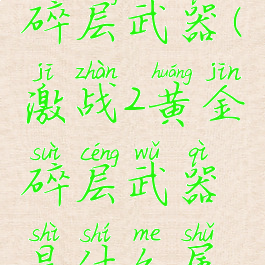 碎层武器(
jī zhàn huáng jīn
激战2黄金
suì céng wǔ qì
碎层武器
shì shí me shǔ
是什么属